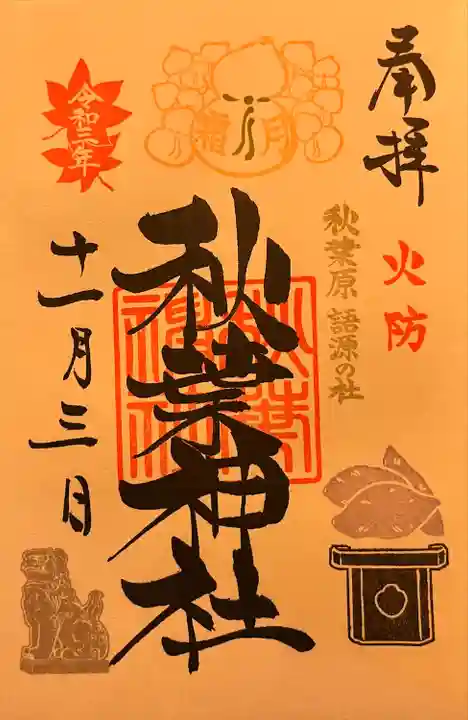 奉拝
火防
秋葉原 語源の社
霜月
秋葉神社
秋葉神社
令和二年
十一月三日